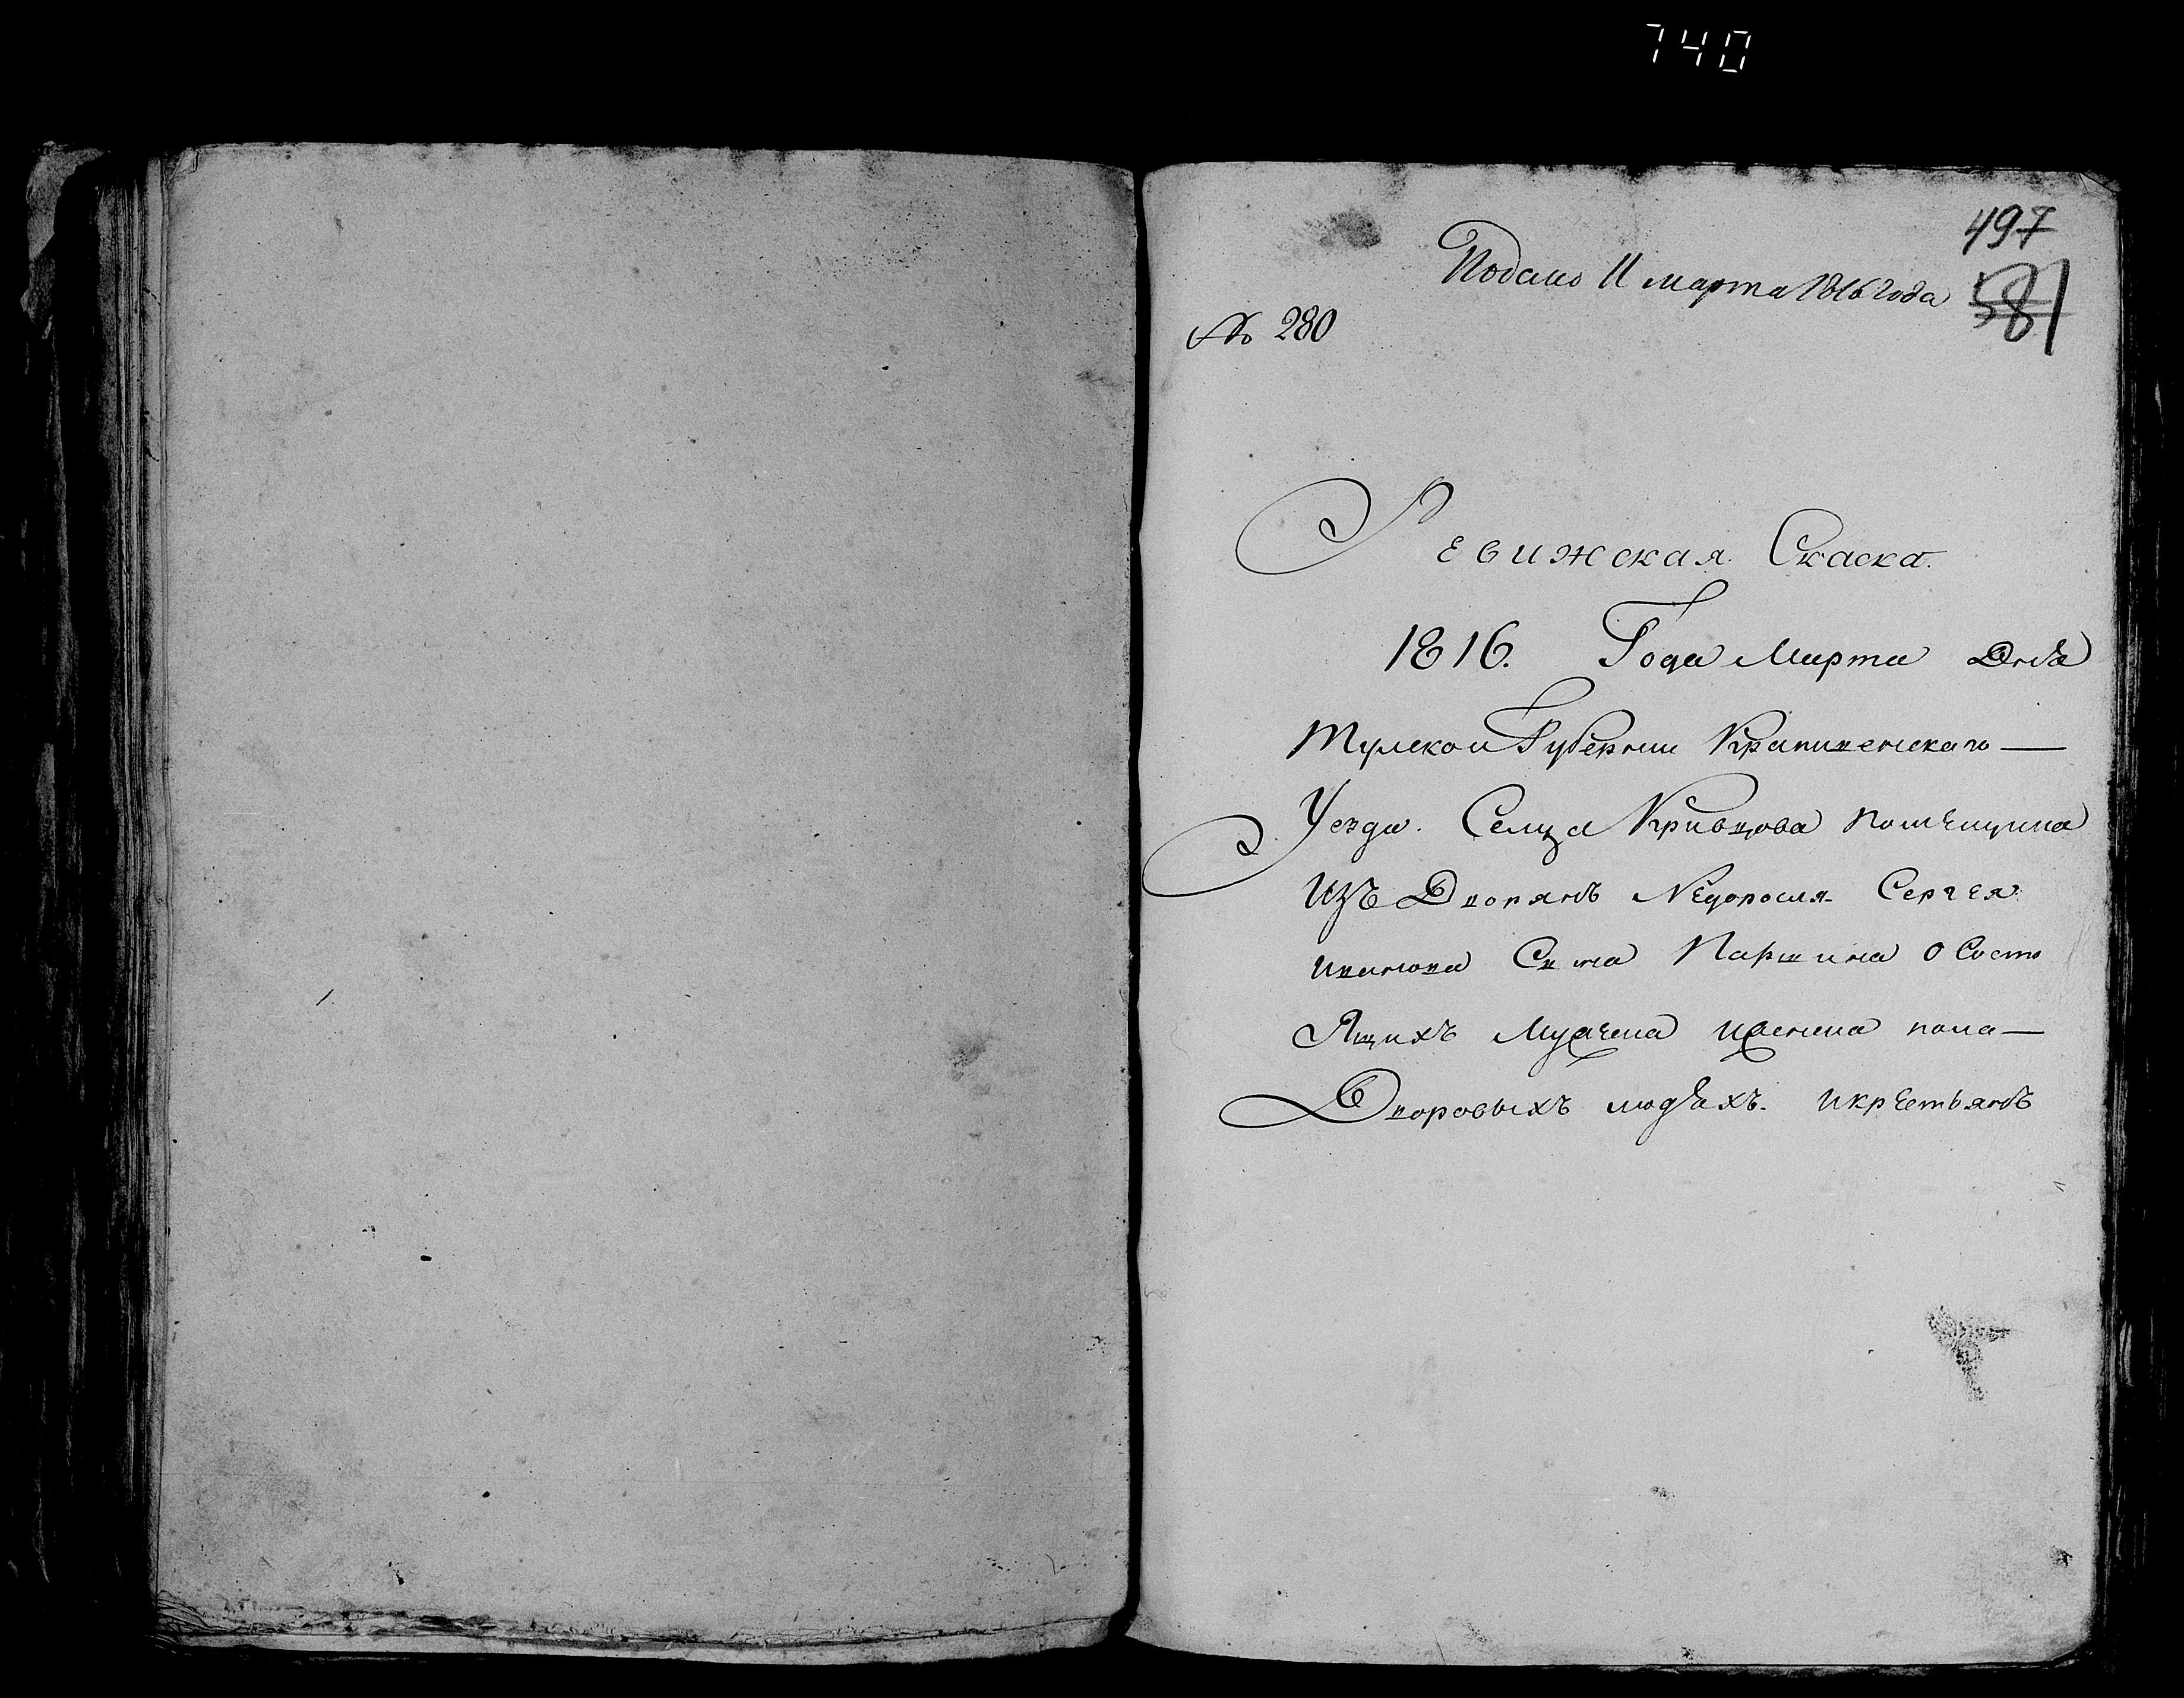 740
497
Подано 11 марта 1816 года
581
№ 280
Ревижская Скаска.
1816. Года Марта Дня
Тулской Губернии Крапивенскаго —
Уезда. Селца Кривцова помещика
Изъ Дворянъ Недоросля Сергея
иванова Сына Паршина о Состо
Ящихъ Мужеска иженска пола —
Дворовыхъ людѣхъ. икрестьянъ